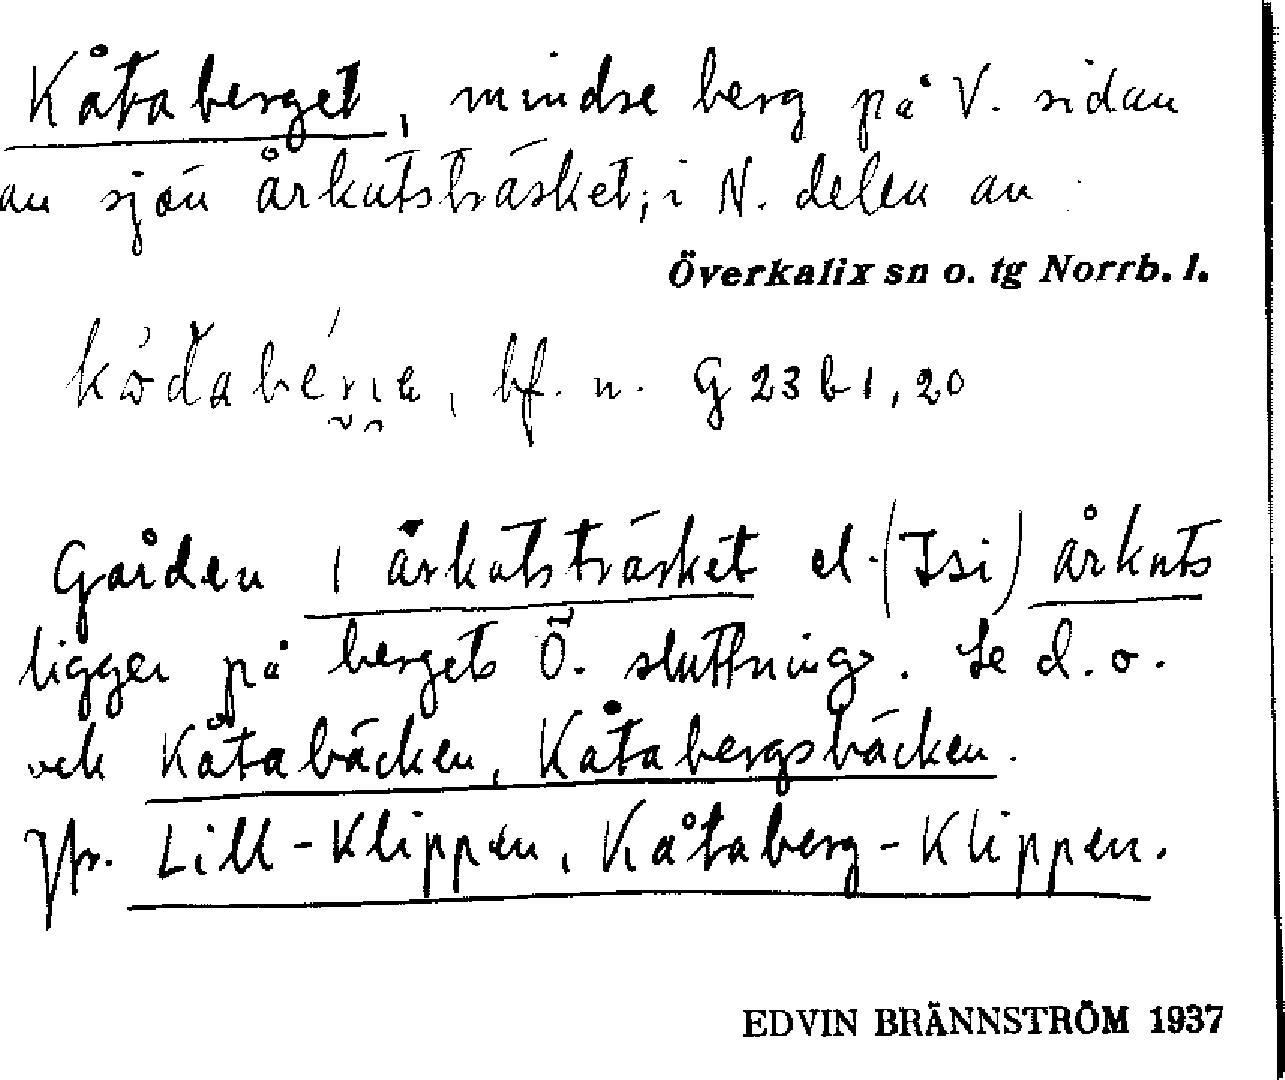 Kåtaberget, mindre berg på V. sidan
av sjön Årkutsträsket; i N. delen av
Överkalix sn o. tg Norrb. l.
bf. n. G 23 b 1, 20
Gården i Årkutsträsket el. (Isi) Årkuts
ligger på bergets Ö. sluttning. Se d. o.
och Kåtabäcken, Kåtabergsbäcken.
Jfr. Lill-Klippen, Kåtaberg-Klippen.
EDVIN BRÄNNSTRÖM 1937